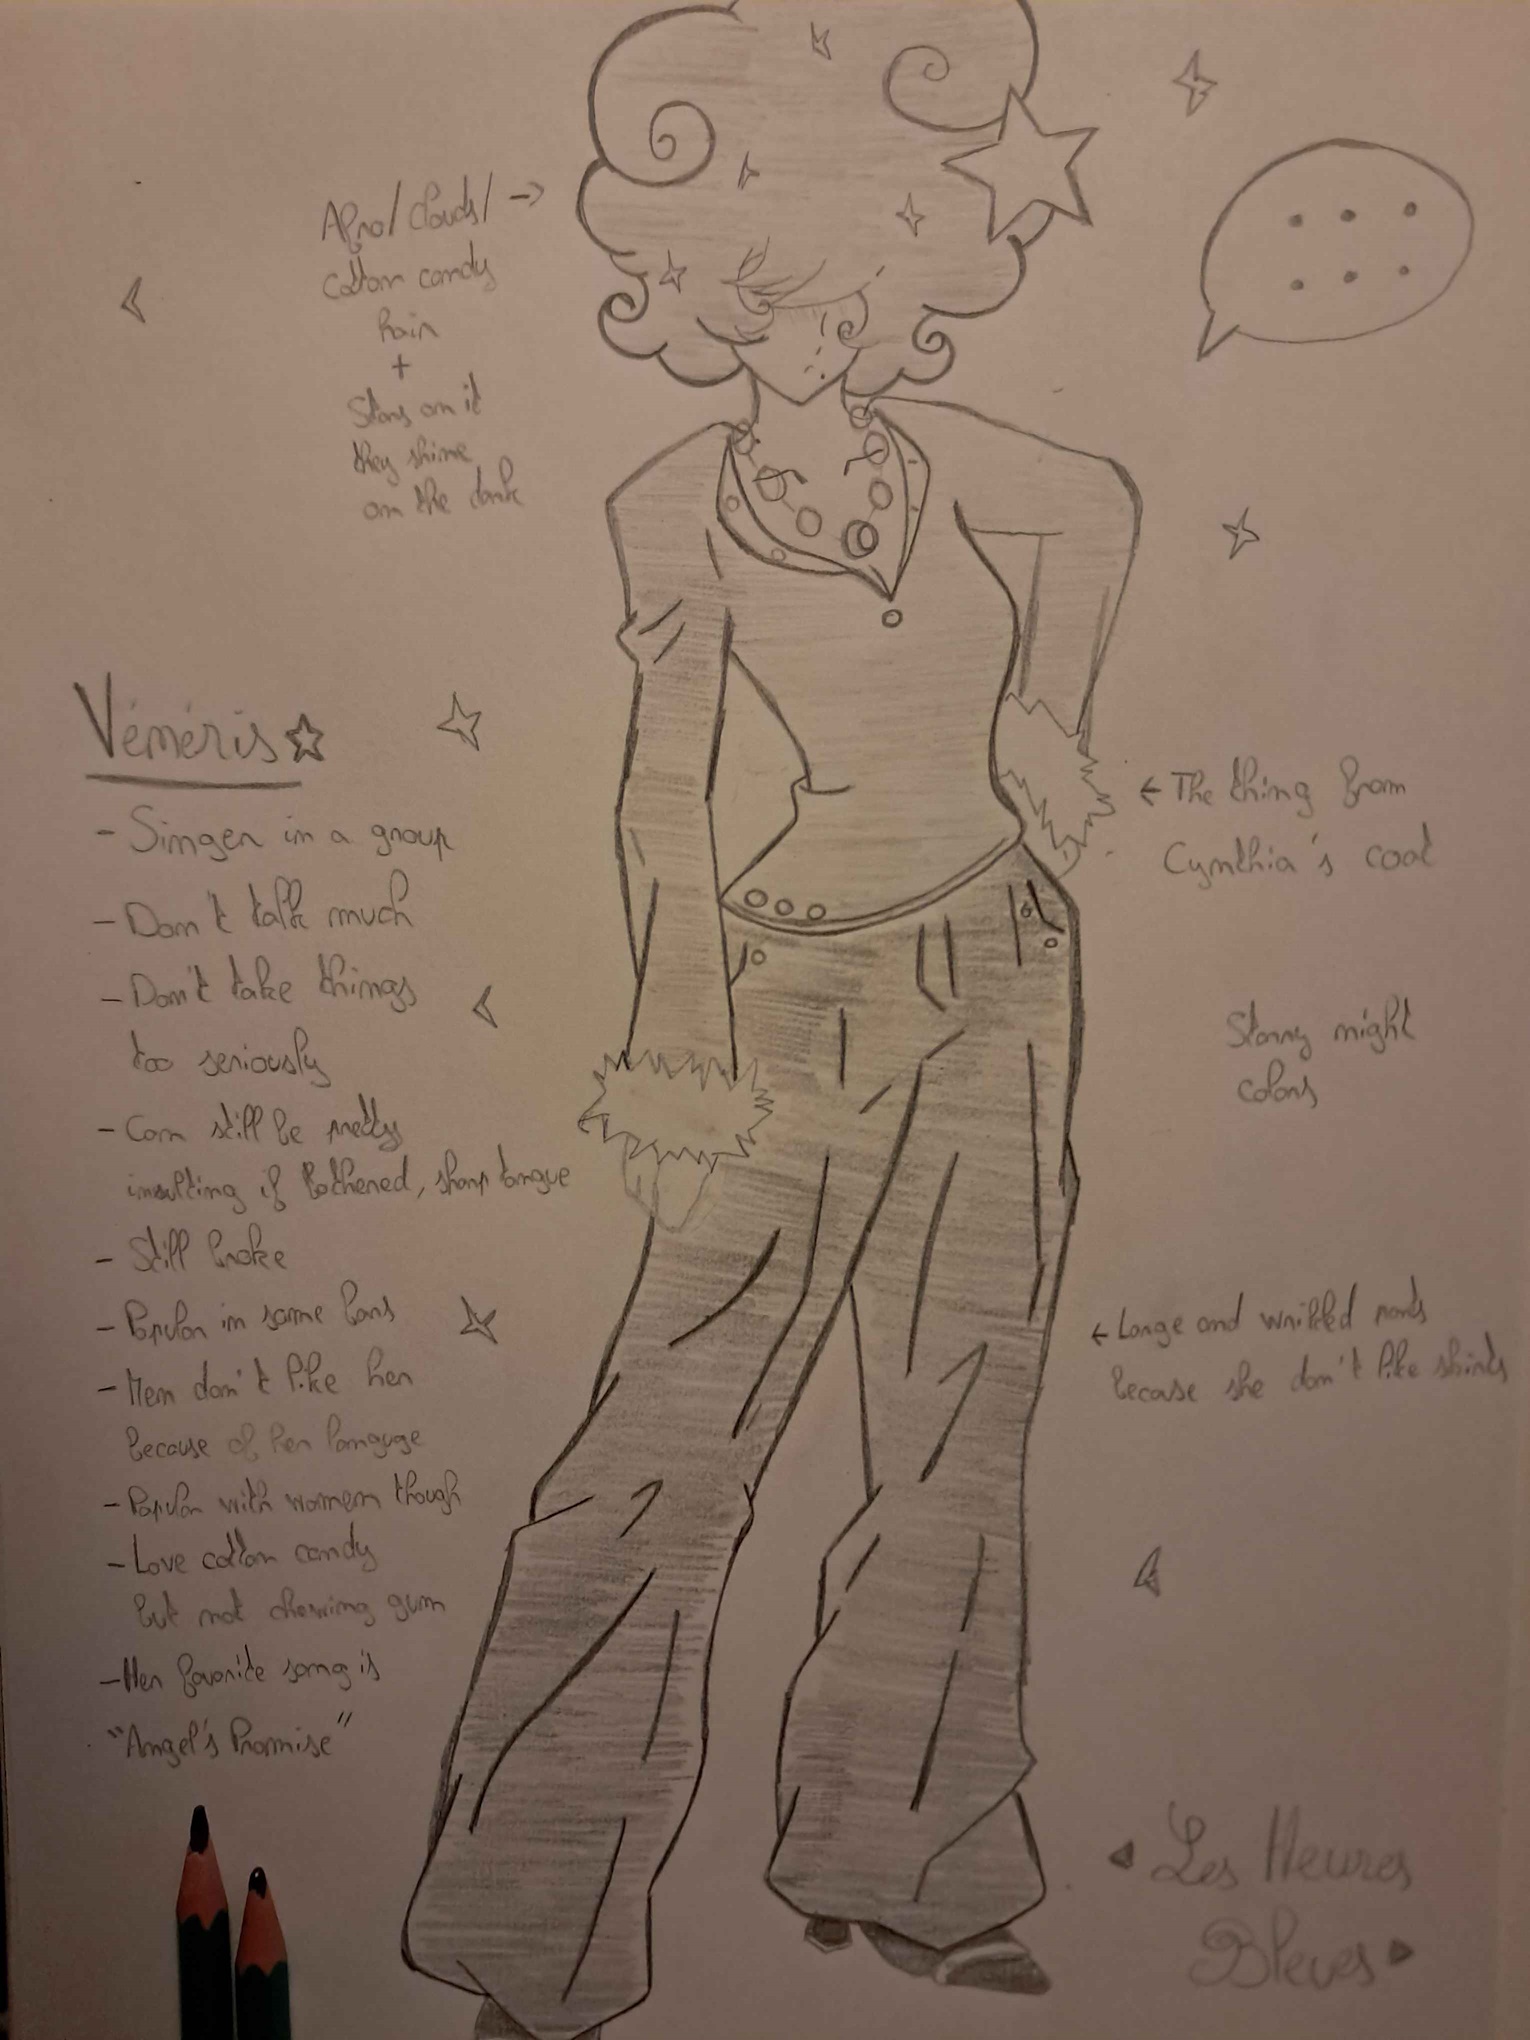 Afro/clouds/ →
cotton candy
hair
+
Stars on it
they shine
on the dark
Vénéris☆
- Singer in a group
- Don't talk much
- Don't take things
too seriously
- Can still be pretty
insulting if bothered, sharp tongue
- Still broke
- Popular in some bars
- Men don't like her
because of her language
- Popular with women though
- Love cotton candy
but not chewing gum
- Her favorite song is
"Angel's Promise"
← The thing from
Cynthia's coat
Starry night
colors
← Large and wrikled pants
becase she don't like shirts
Les Heures
Bleues